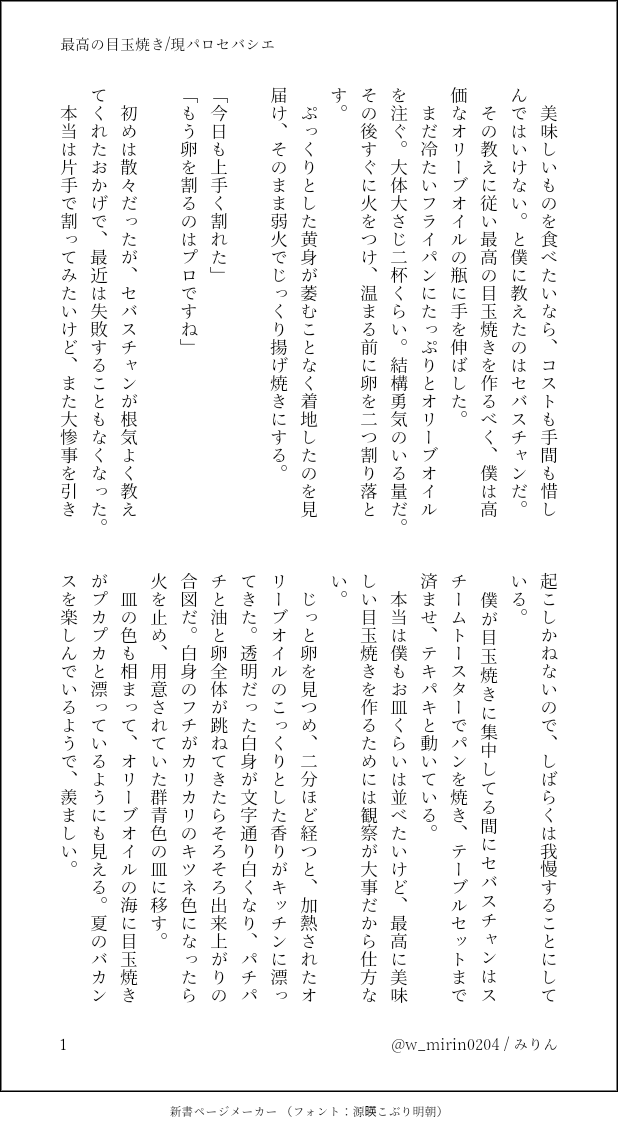 最高の目玉焼き/現パロセバシエ
　美味しいものを食べたいなら、コストも手間も惜し
んではいけない。と僕に教えたのはセバスチャンだ。
　その教えに従い最高の目玉焼きを作るべく、僕は高
価なオリーブオイルの瓶に手を伸ばした。
　まだ冷たいフライパンにたっぷりとオリーブオイル
を注ぐ。大体大さじ二杯くらい。結構勇気のいる量だ。
その後すぐに火をつけ、温まる前に卵を二つ割り落と
す。
　ぷっくりとした黄身が萎むことなく着地したのを見
届け、そのまま弱火でじっくり揚げ焼きにする。
「今日も上手く割れた」
「もう卵を割るのはプロですね」
　初めは散々だったが、セバスチャンが根気よく教え
てくれたおかげで、最近は失敗することもなくなった。
　本当は片手で割ってみたいけど、また大惨事を引き
起こしかねないので、しばらくは我慢することにして
いる。
　僕が目玉焼きに集中してる間にセバスチャンはス
チームトースターでパンを焼き、テーブルセットまで
済ませ、テキパキと動いている。
　本当は僕もお皿くらいは並べたいけど、最高に美味
しい目玉焼きを作るためには観察が大事だから仕方な
い。
　じっと卵を見つめ、二分ほど経つと、加熱されたオ
リーブオイルのこっくりとした香りがキッチンに漂っ
てきた。透明だった白身が文字通り白くなり、パチパ
チと油と卵全体が跳ねてきたらそろそろ出来上がりの
合図だ。白身のフチがカリカリのキツネ色になったら
火を止め、用意されていた群青色の皿に移す。
　皿の色も相まって、オリーブオイルの海に目玉焼き
がプカプカと漂っているようにも見える。夏のバカン
スを楽しんでいるようで、羨ましい。
1
@w_mirin0204 / みりん
新書ページメーカー （フォント：源暎こぶり明朝）